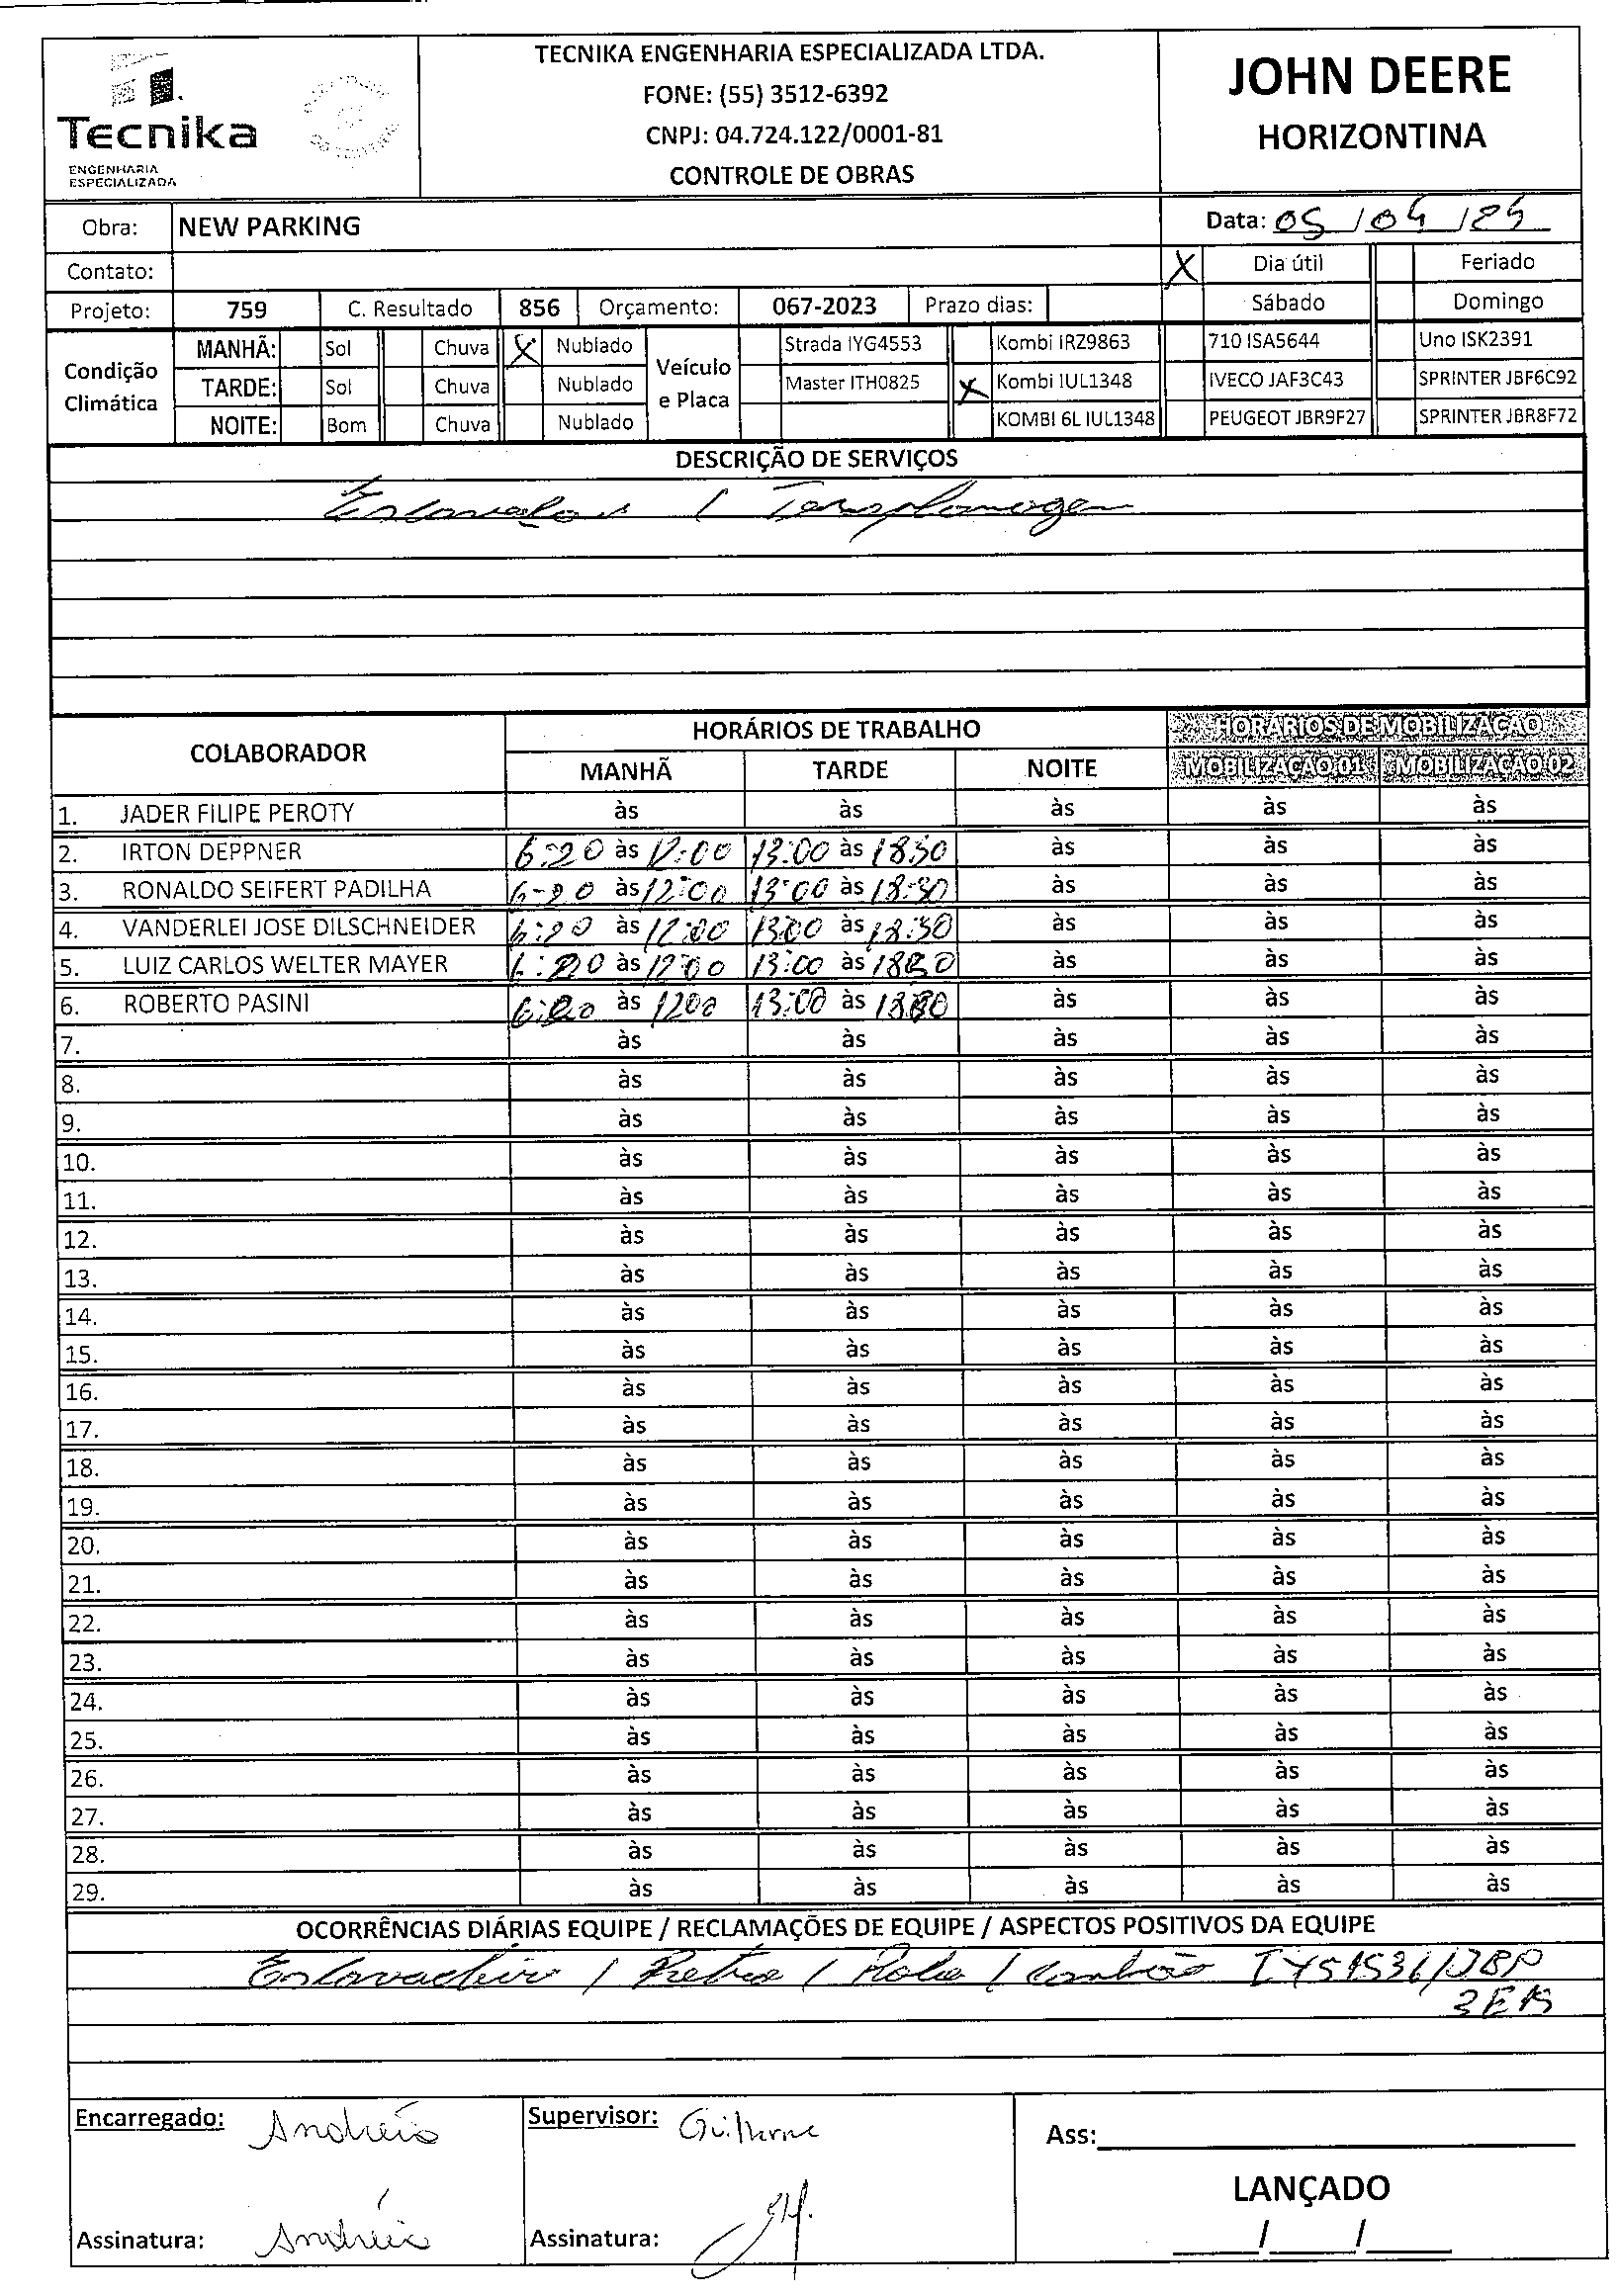 Tecnika
ENGENHARIA
ESPECIALIZADA
TECNIKA ENGENHARIA ESPECIALIZADA LTDA.
FONE: (55) 3512-6392
CNPJ: 04.724.122/0001-81
CONTROLE DE OBRAS
JOHN DEERE
HORIZONTINA
Obra: NEW PARKING Data: 05/04/24
Contato: X Dia útil Feriado
Projeto: 759 C. Resultado 856 Orçamento: 067-2023 Prazo dias: Sábado Domingo
Condição Climática
MANHÃ: Sol Chuva X Nublado
TARDE: Sol Chuva Nublado
NOITE: Bom Chuva Nublado
Veículo e Placa
Strada IYG4553 Kombi IRZ9863 710 ISA5644 Uno ISK2391
Master ITH0825 X Kombi IUL1348 IVECO JAF3C43 SPRINTER JBF6C92
KOMBI 6L IUL1348 PEUGEOT JBR9F27 SPRINTER JBR8F72
DESCRIÇÃO DE SERVIÇOS
Escavação / Terraplanagem
COLABORADOR HORÁRIOS DE TRABALHO HORÁRIOS DE MOBILIZAÇÃO
MANHÃ TARDE NOITE MOBILIZAÇÃO 01 MOBILIZAÇÃO 02
1. JADER FILIPE PEROTY às às às às às
2. IRTON DEPPNER 6:20 às 12:00 13:00 às 18:30 às às às
3. RONALDO SEIFERT PADILHA 6:20 às 12:00 13:00 às 18:30 às às às
4. VANDERLEI JOSE DILSCHNEIDER 6:20 às 12:00 13:00 às 18:30 às às às
5. LUIZ CARLOS WELTER MAYER 6:20 às 12:00 13:00 às 18:30 às às às
6. ROBERTO PASINI 6:20 às 12:00 13:00 às 18:30 às às às
7. às às às às às
8. às às às às às
9. às às às às às
10. às às às às às
11. às às às às às
12. às às às às às
13. às às às às às
14. às às às às às
15. às às às às às
16. às às às às às
17. às às às às às
18. às às às às às
19. às às às às às
20. às às às às às
21. às às às às às
22. às às às às às
23. às às às às às
24. às às às às às
25. às às às às às
26. às às às às às
27. às às às às às
28. às às às às às
29. às às às às às
OCORRÊNCIAS DIÁRIAS EQUIPE / RECLAMAÇÕES DE EQUIPE / ASPECTOS POSITIVOS DA EQUIPE
/ / Rolo /
Encarregado: Andréia Supervisor: Guilherme Ass:
LANÇADO
Assinatura: Andréia Assinatura: / /